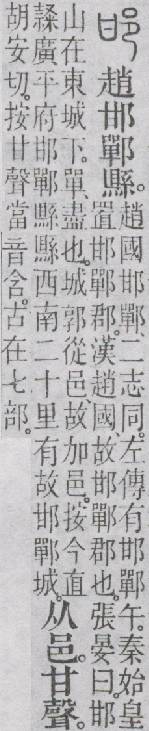 邯 趙邯鄲縣。
趙國邯鄲二志同。左傳有邯鄲午。秦始皇
置邯鄲郡。漢趙國、故邯鄲郡也。張晏曰。邯
山在東城下。單、盡也。城郭從邑。故加邑。按今直
隸廣平府邯鄲縣縣西南二十里有故邯鄲城。
从邑。甘聲。
胡安切。按甘聲當
音含。古在七部。